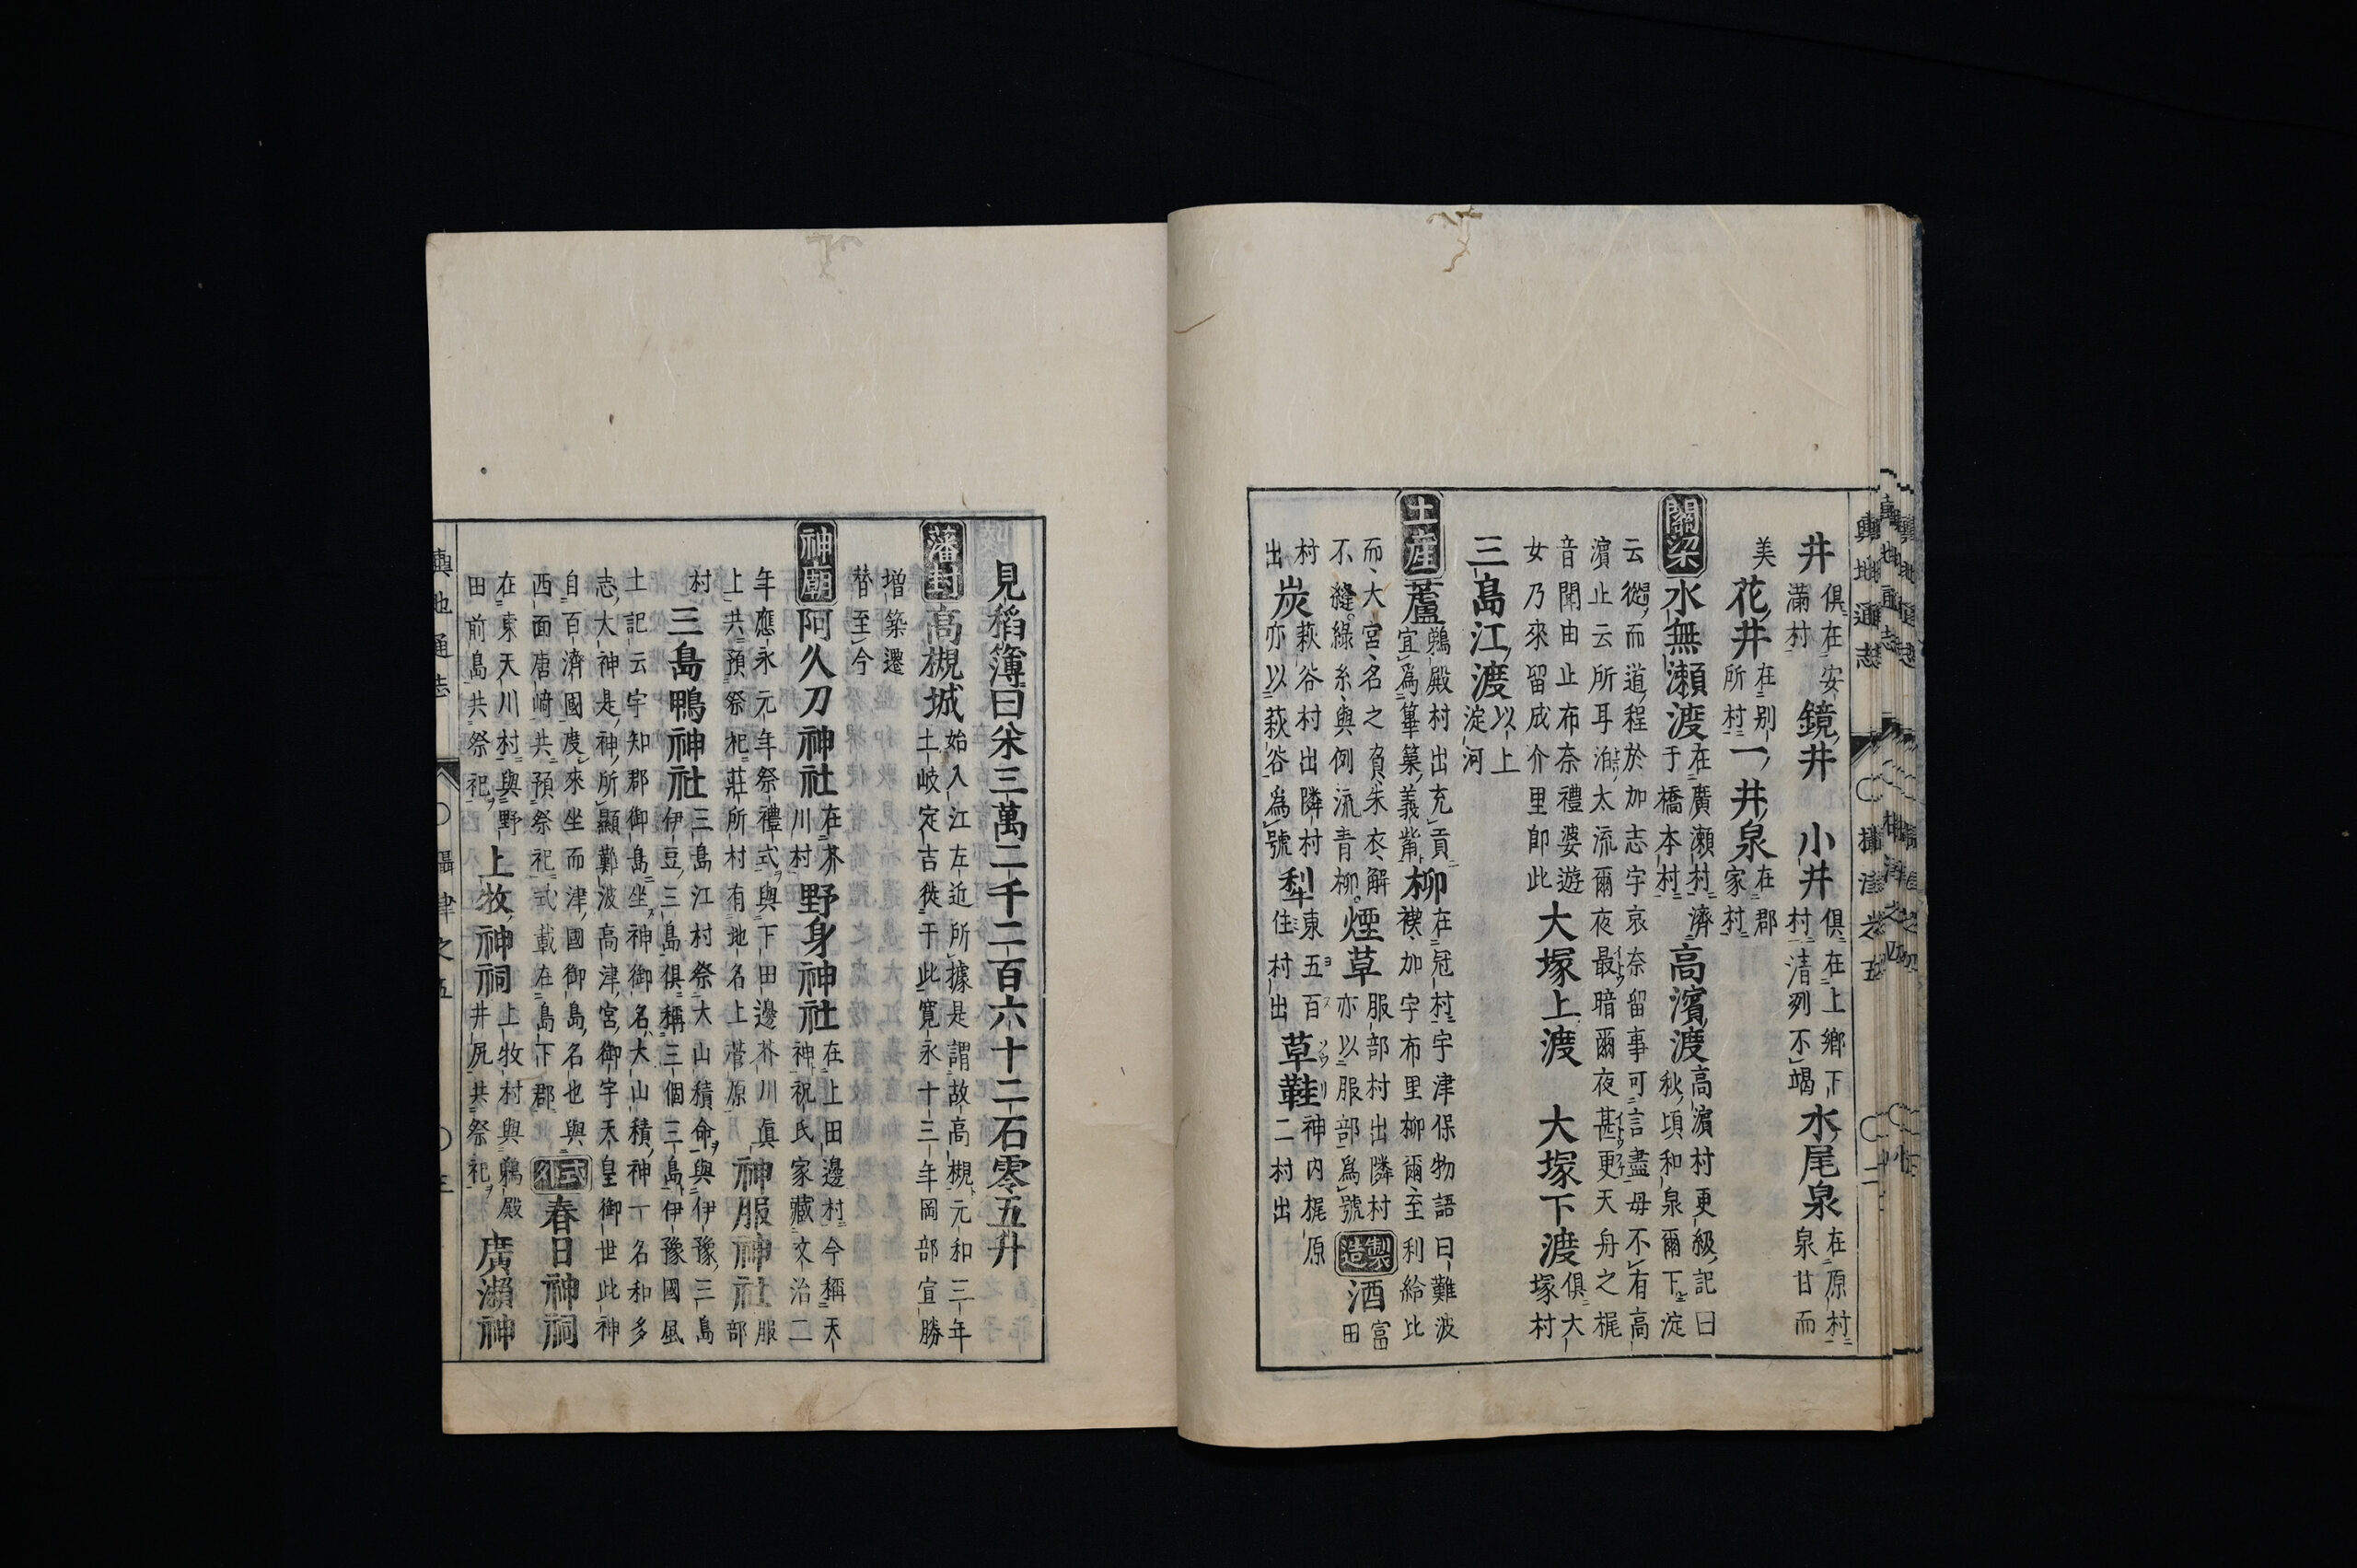 井俱在安滿村鏡井　小井俱在上鄉下村清冽不竭水尾泉在原村泉甘而
美花井在別所村一井泉在郡家村
關梁水無瀨渡在廣瀨村濟于橋本村高濱渡高濱村更級記曰秋頃和泉爾下淀
云從而道程於加志宇哀奈留事可言盡毋不有高濱止云所耳泊太流爾夜最暗爾夜甚更天舟之梶
音聞由止布奈禮婆遊女乃來留成介里卽此大塚上渡　大塚下渡俱大塚村
三島江渡以上淀河
土產蘆鵜殿村出充貢宜爲篳篥義觜柳在冠村宇津保物語曰難波襖加宇布里柳爾至利給比
而大宮名之負朱衣解不縫綠糸與例流青柳煙草服部村出隣村亦以服部爲號製造酒富田
村出炭萩谷村出隣村亦以萩谷爲號犁東五百住村出草鞋神內梶原二村出
輿地通志　攝津之五　二
見稻簿曰米三萬二千二百六十二石零五升
藩封高槻城始入江左近所據是謂故高槻元和三年土岐定吉徙于此寬永十三年岡部宣勝
增築遷替至今
神廟阿久刀神社在芥川村野身神社在上田邊村今稱天神祝氏家藏文治二
年應永元年祭禮式與下田邊芥川眞上共預祭祀莊所村有地名上菅原神服神社服部
村三島鴨神社三島江村祭大山積命與伊豫三島伊豆三島俱稱三個三島伊豫國風
土記云宇知郡御島坐神御名大山積神一名和多志大神是神所顯難波高津宮御宇天皇御世此神
自百濟國度來坐而津國御島名也與西面唐崎共預祭祀式載在島下郡式外春日神祠
在東天川村與野田前島共祭祀上牧神祠上牧村與鵜殿井尻共祭祀廣瀨神
輿地通志　攝津之五　三